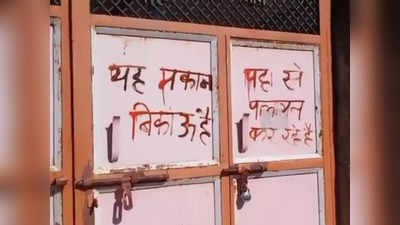 यह मकान
बिकाऊ है
यहा से
पलायन
कर रहे है